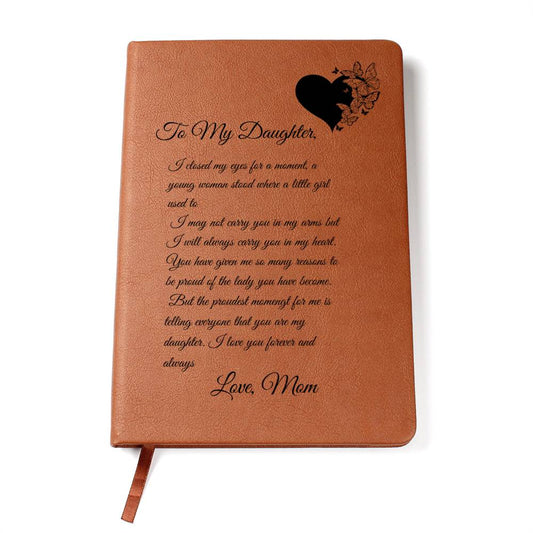 To My Daughter,
I closed my eyes for a moment, a
young woman stood where a little girl
used to
I may not carry you in my arms but
I will always carry you in my heart.
You have given me so many reasons to
be proud of the lady you have become.
But the proudest momengt for me is
telling everyone that you are my
daughter. I love you forever and
always
Love, Mom